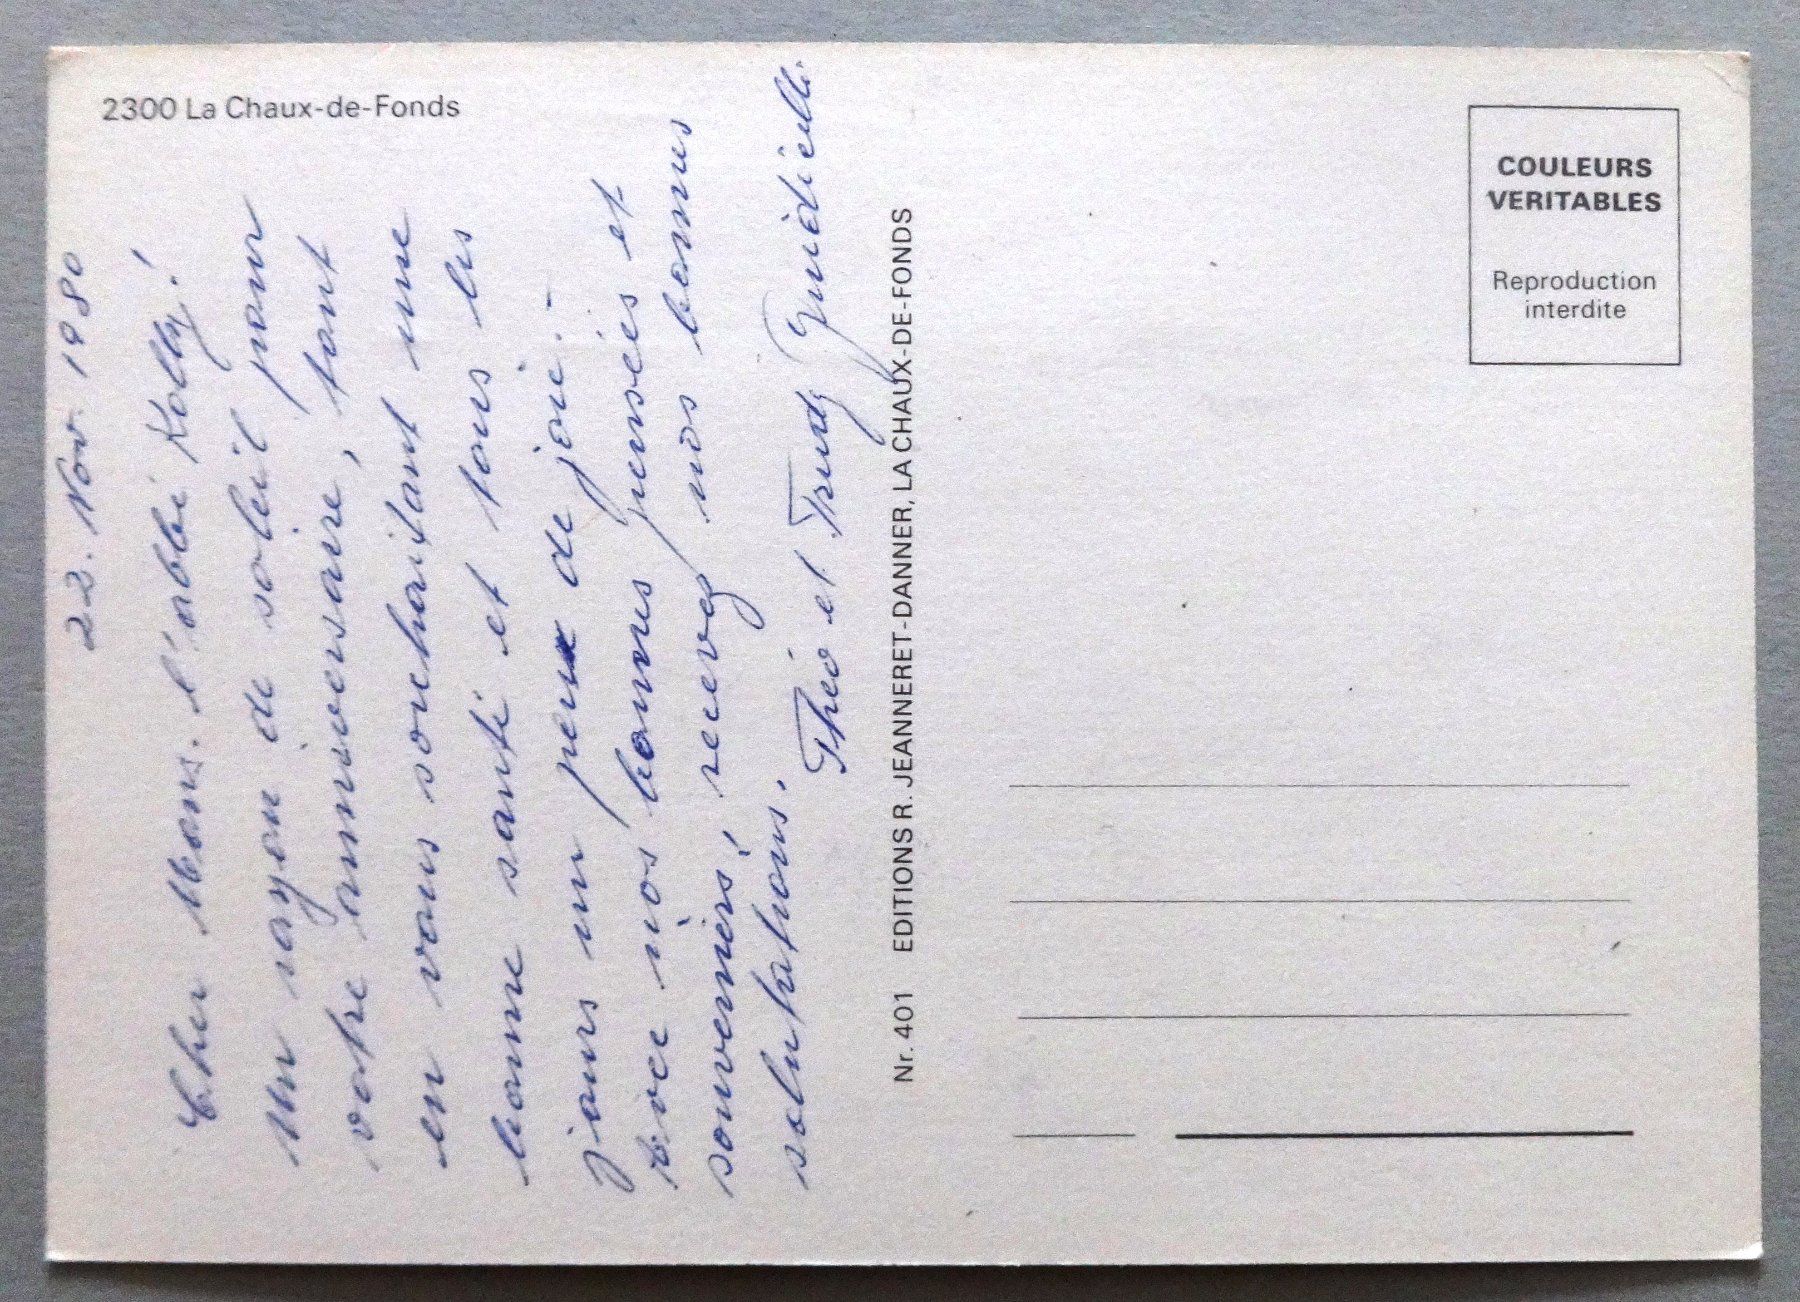 2300 La Chaux-de-Fonds
22. Nov. 1980
Cher Mons. l'abbé Kolly!
Un rayon de soleil pour
votre anniversaire, tout
en vous souhaitant une
bonne santé et tous les
jours un peu de joie. -
nos bonnes pensées et
souveniers, recevez nos bonnes
salutations.
Théo et Trudy
Nr. 401 EDITIONS R. JEANNERET-DANNER, LA CHAUX-DE-FONDS
COULEURS
VERITABLES
Reproduction
interdite